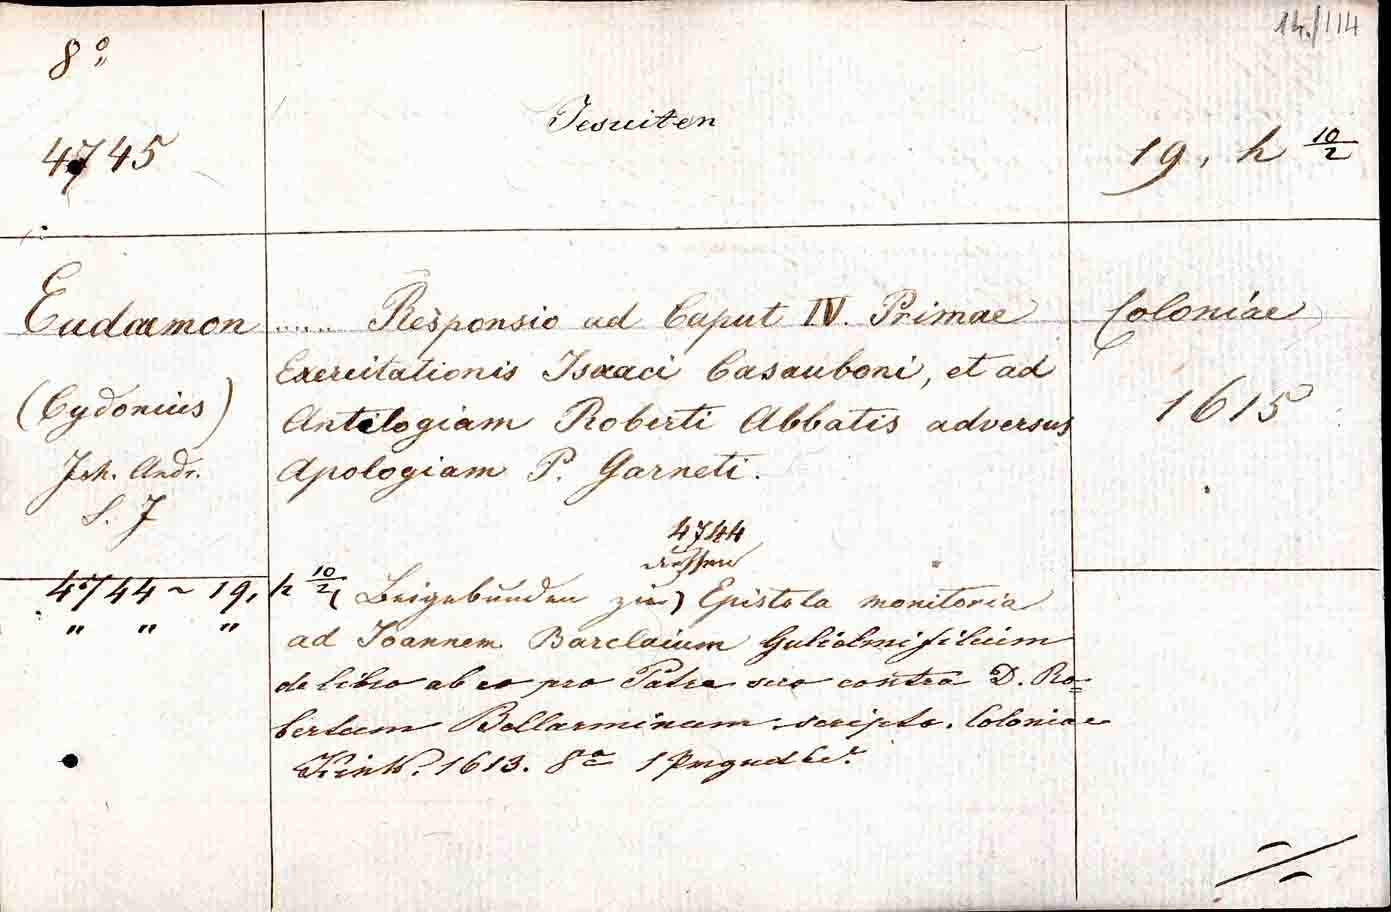 14./114
8°
4745
Jesuiten
19, h 10/2
Eudaemon
(Cydonius)
Joh. Andr.
S. J
..... Responsio ad Caput IV. Primae
Exercitationis Isaaci Casauboni, et ad
Antilogiam Roberti Abbatis adversus
Apologiam P. Garneti.
Coloniae
1615
4744
dessen
4744 ~ 19, h 10/2 (Beigebunden zu) Epistola monitoria
" " " ad Joannem Barclaium Gulielmi filium
de libro ab eo pro Patre suo contra D. Ro=
bertum Bellarminum scripto. Coloniae
Kink. 1613. 8° 1